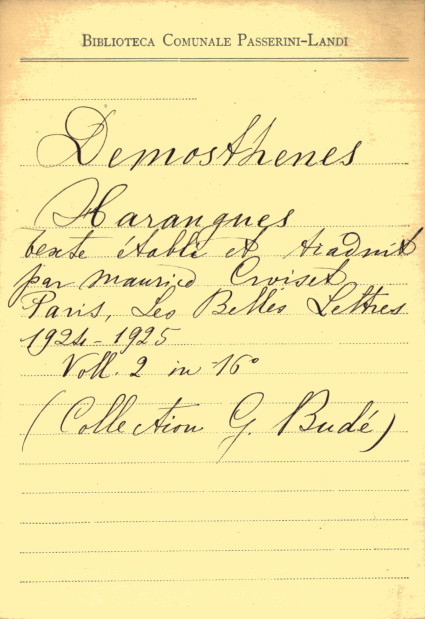 BIBLIOTECA COMUNALE PASSERINI-LANDI
Demosthenes
Harangues
texte établi et traduit
par Maurice Croiset
Paris, Les Belles Lettres
1924-1925
Voll. 2 in -16°
(Collection G. Budé)